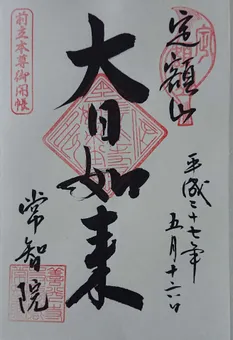 定額山
平成二十七年
五月十六日
大日如来
前立本尊御開帳
常智院